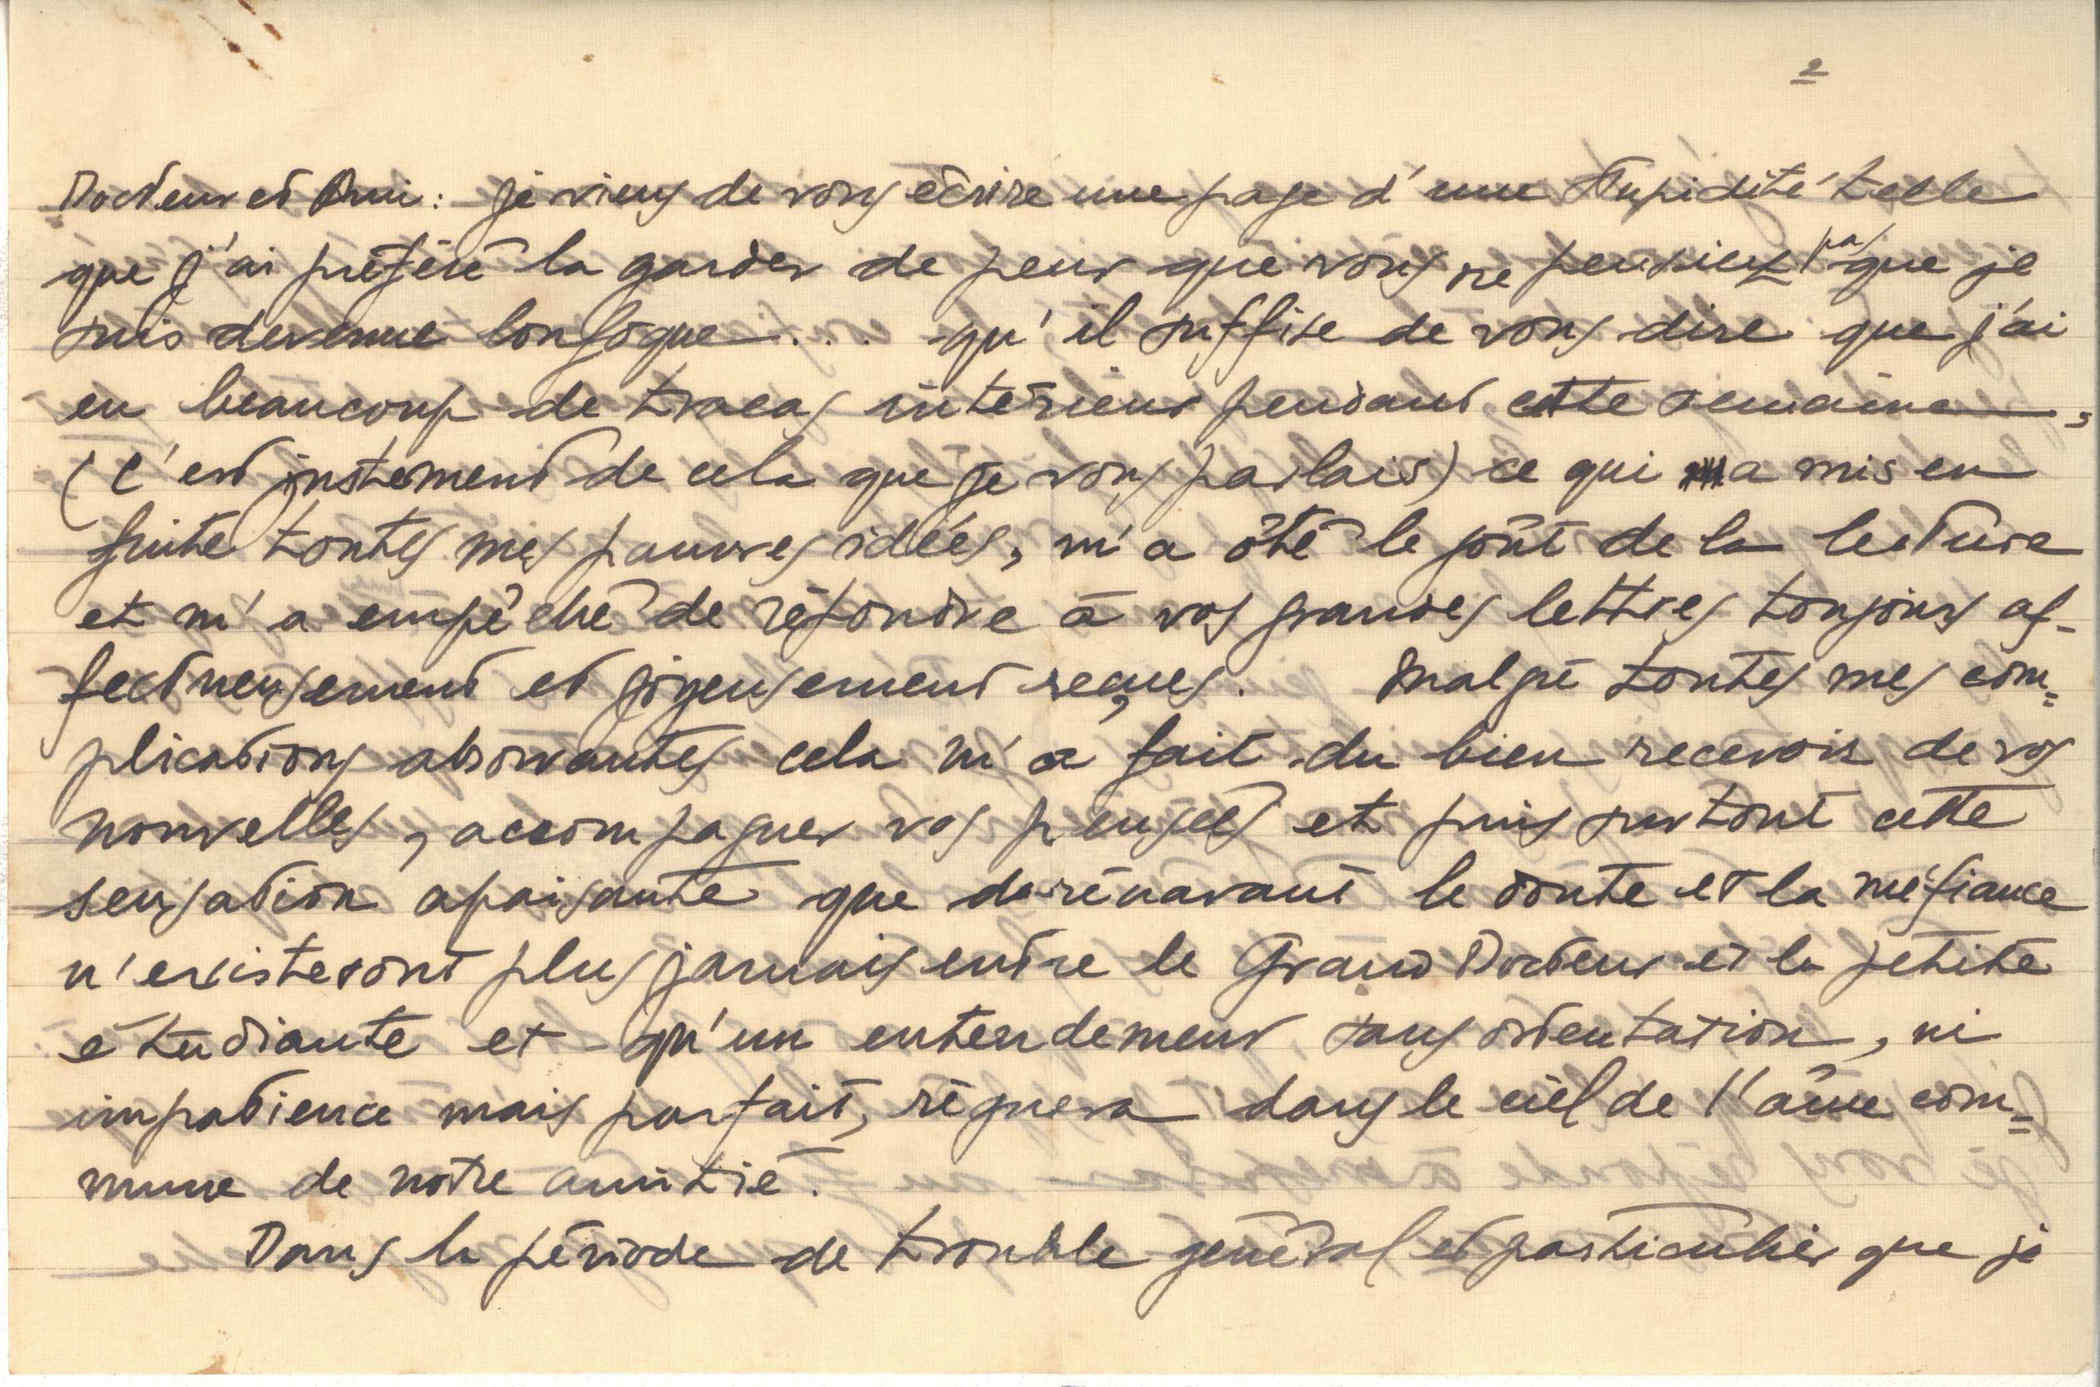 2
Docteur et Ami : je viens de vous écrire une page d'une stupidité telle
que j'ai préféré la garder de peur que vous ne pensiez pas que je
suis devenue loufoque... qu'il suffise de vous dire que j'ai
eu beaucoup de tracas intérieur pendant cette semaine,
(C'est justement de cela que je vous parlais) ce qui a mis en
fuite toutes mes pauvres idées, m'a ôté le goût de la lecture
et m'a empêché de répondre à vos grandes lettres toujours af-
fectueusement et joyeusement reçues. Malgré toutes mes com=
plications absorvantes cela m'a fait du bien recevoir de vos
nouvelles, accompagner vos pensées et puis surtout cette
sensation apaisante que dorénavant le doute et la méfiance
n'existeront plus jamais entre le Grand Docteur et la petite
étudiante et qu'un entendement sans ostentation, ni
impatience mais parfait, règnera dans le ciel de l'âme com=
mune de notre amitié.
Dans la période de trouble général et particulier que je